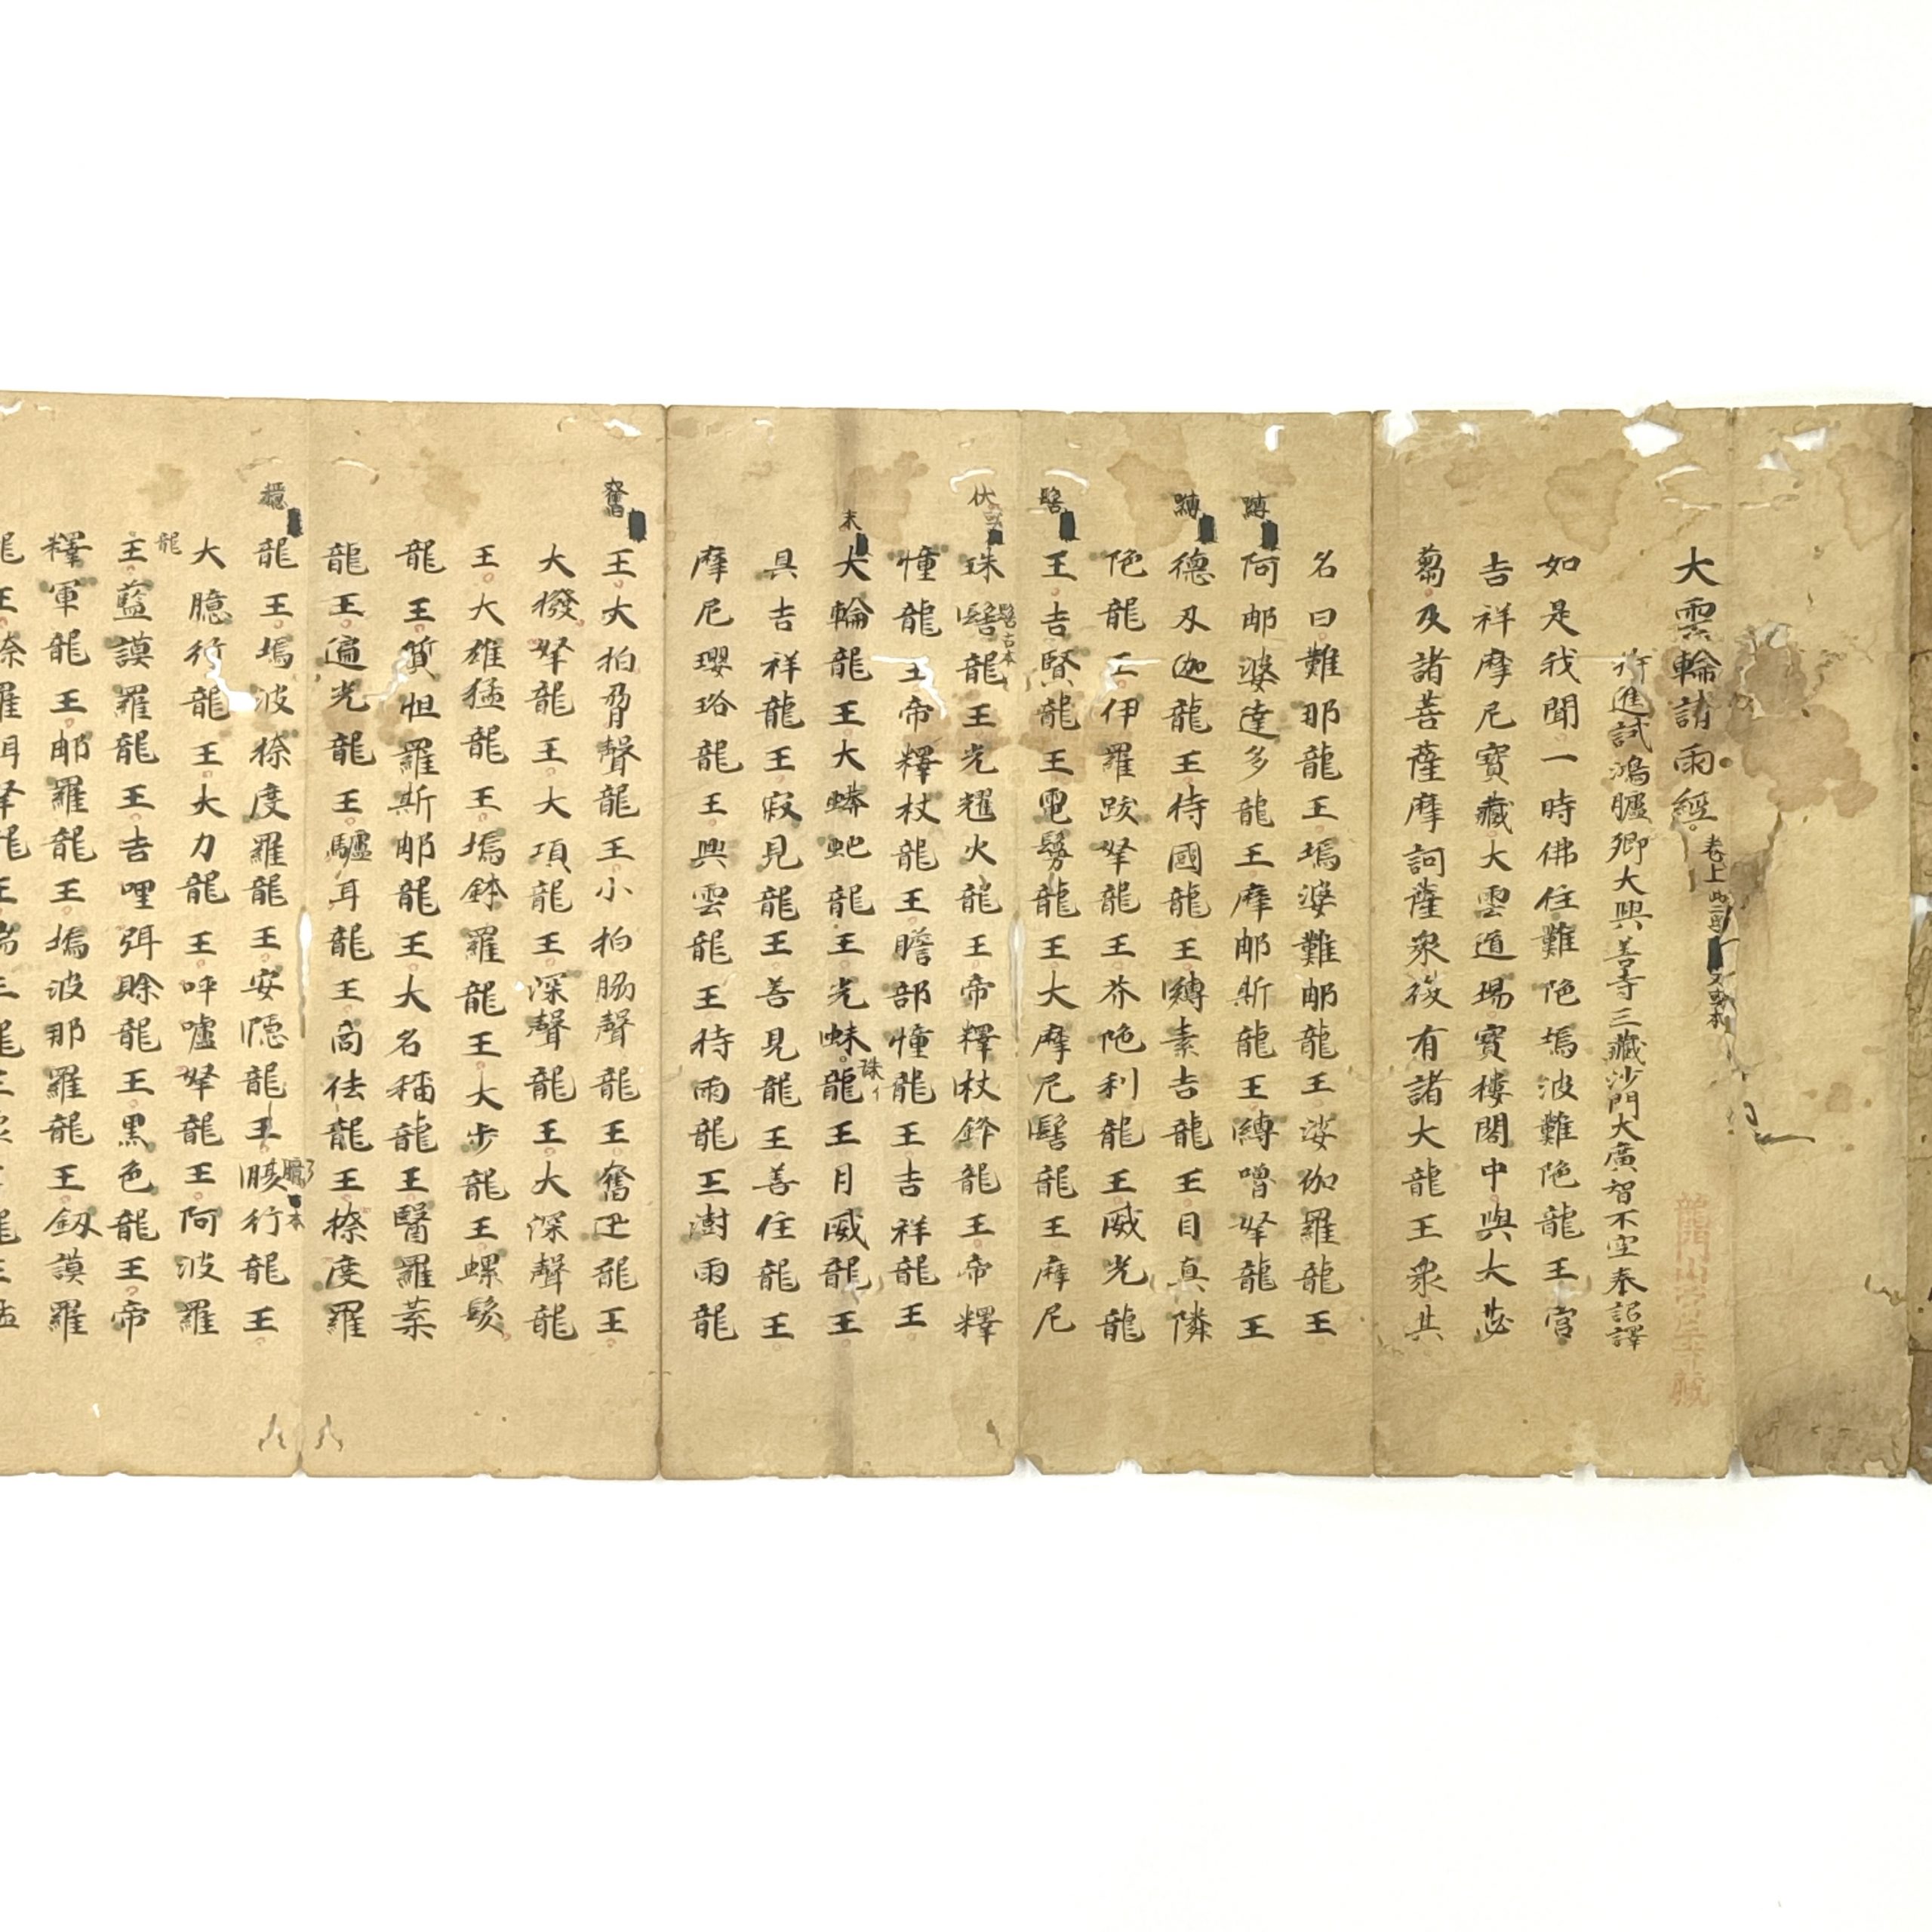 大雲輪請雨經 卷上
特進試鴻臚卿大興善寺三藏沙門大廣智不空奉詔譯
如是我聞一時佛住難陁塢波難陁龍王宮
吉祥摩尼寶藏大雲道場寶樓閣中與大苾
蒭及諸菩薩摩訶薩衆復有諸大龍王衆其
名曰難那龍王塢婆難郍龍王娑伽羅龍王
阿郍婆達多龍王摩郍斯龍王嚩嚕拏龍王
德叉迦龍王持國龍王嚩素吉龍王目真隣
陁龍王伊羅跋拏龍王芥陁利龍王威光龍
王吉賢龍王電鬘龍王大摩尼髻龍王摩尼
珠髻龍王光耀火龍王帝釋杖鋒龍王帝釋
幢龍王帝釋杖龍王贍部幢龍王吉祥龍王
大輪龍王大蟒虵龍王光蛛龍王月威龍王
具吉祥龍王寂見龍王善見龍王善住龍王
摩尼瓔珞龍王興雲龍王持雨龍王澍雨龍
王大拍脅聲龍王小拍脇聲龍王奮迅龍王
大撥拏龍王大項龍王深聲龍王大深聲龍
王大雄猛龍王塢鉢羅龍王大步龍王螺髮
龍王質怛羅斯郍龍王大名稱龍王醫羅葉
龍王遍光龍王驢耳龍王商佉龍王捺度羅
龍王塢波捺度羅龍王安隱龍王腹行龍王
大臆行龍王大力龍王呼嚧拏龍王阿波羅
王藍謨羅龍王吉哩弭賒龍王黑色龍王帝
釋軍龍王郍羅龍王塢波那羅龍王釼謨羅